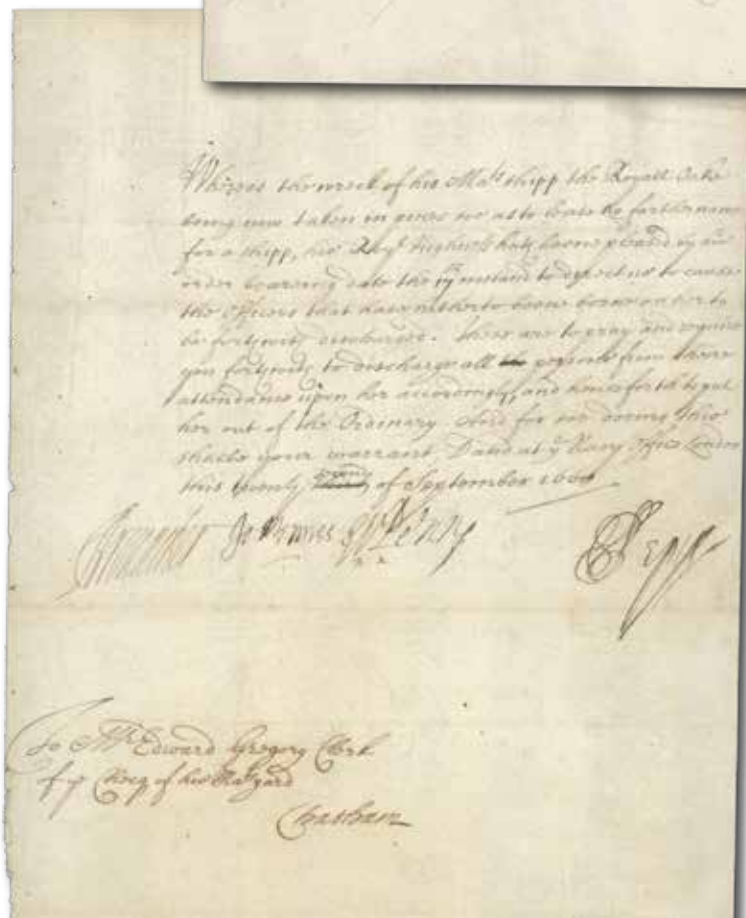 Whereas the wreck of his Ma.ts shipp the Royall Oake
being now taken in peices soe as to beare the farther name
for a shipp, his Roy.ll Highness hath beene pleased by his
order bearing date the instant to direct us to cause
the Officers that have hitherto beene borne on her to
be forthwith discharged. These are to pray and require
you forthwith to discharge all persons from there
attendance upon her accordingly, and henceforth to put
her out of the Ordinary. And for soe doeing this
shalbe your warrant. Dated at y.e Navy Office London
this twenty of September
Brouncker J Mennes W Penn S Pepys
To Mr Edward Gregory Clerk
of y.e Cheq of his Ma.ts yard
Chatham